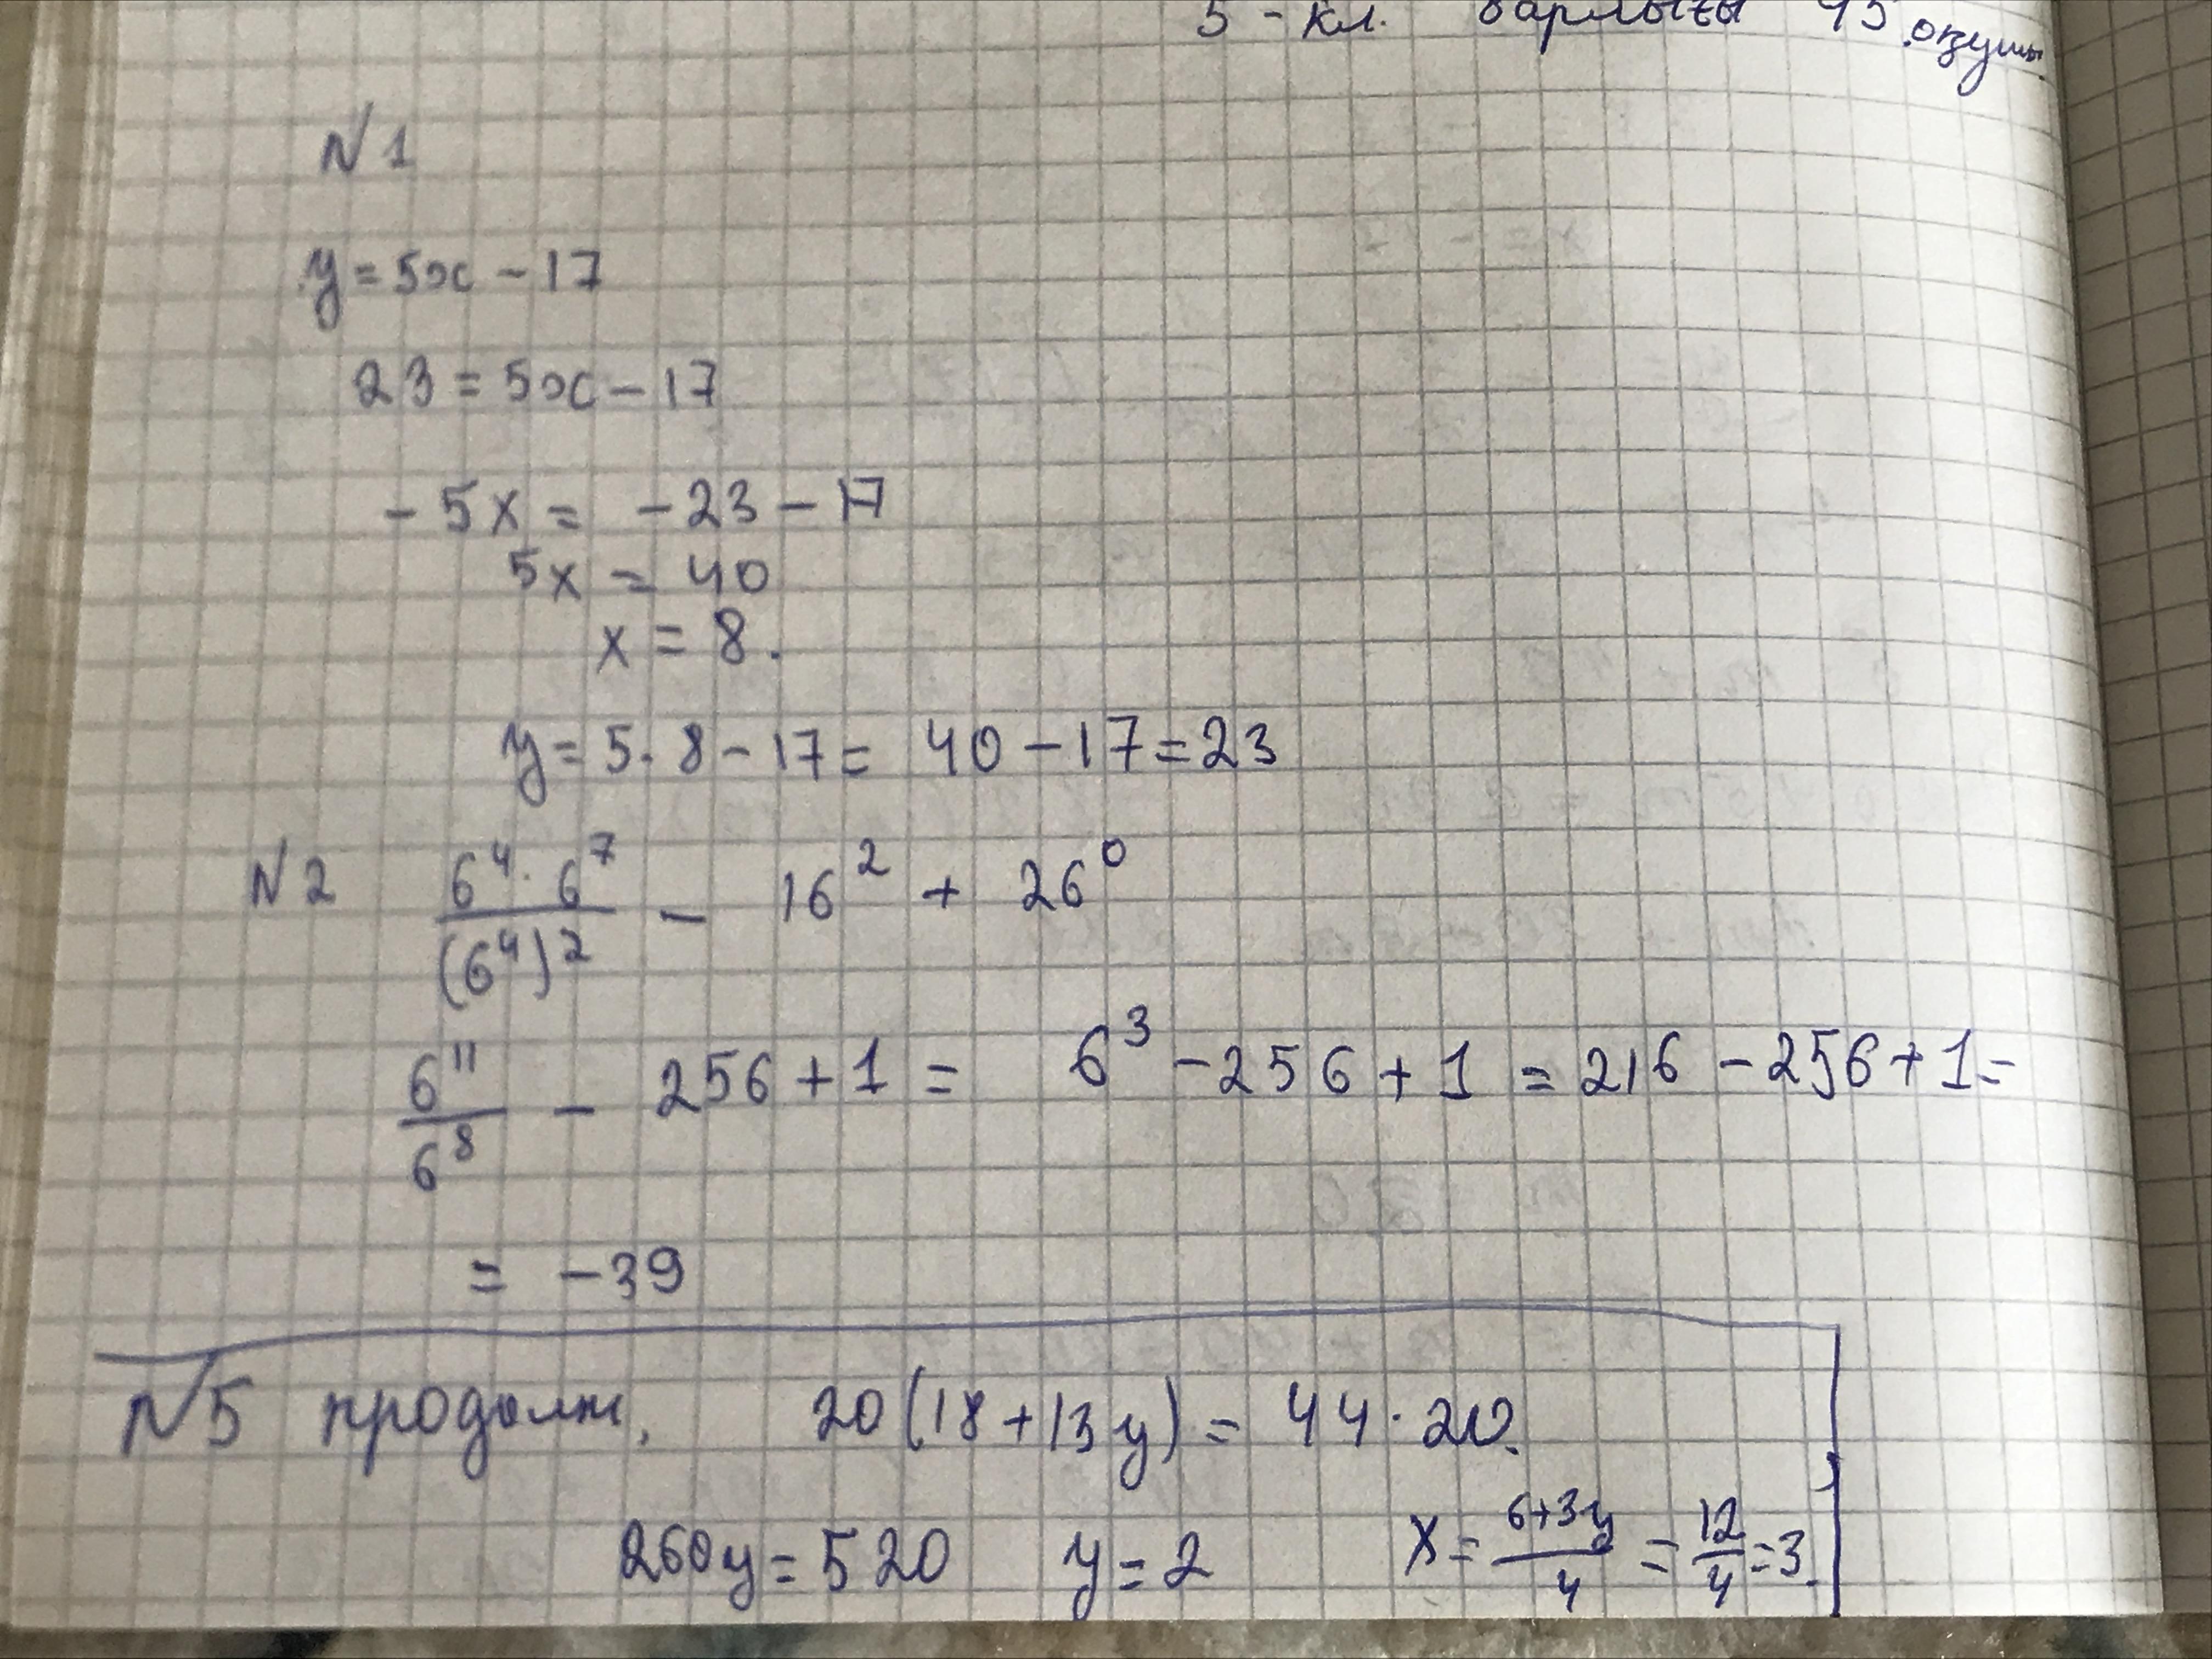 5-кл. барлығы 45 оқушы.
N1
y = 5x - 17
23 = 5x - 17
- 5x = - 23 - 17
5x = 40
x = 8.
y = 5 · 8 - 17 = 40 - 17 = 23
N2 \frac{6^4 · 6^7}{(6^4)^2} - 16^2 + 26^0
\frac{6^{11}}{6^8} - 256 + 1 = 6^3 - 256 + 1 = 216 - 256 + 1 =
= - 39
N5 продолж. 20(18 + 13y) = 44 · 20.
260y = 520 y = 2 x = \frac{6+3y}{4} = \frac{12}{4} = 3.